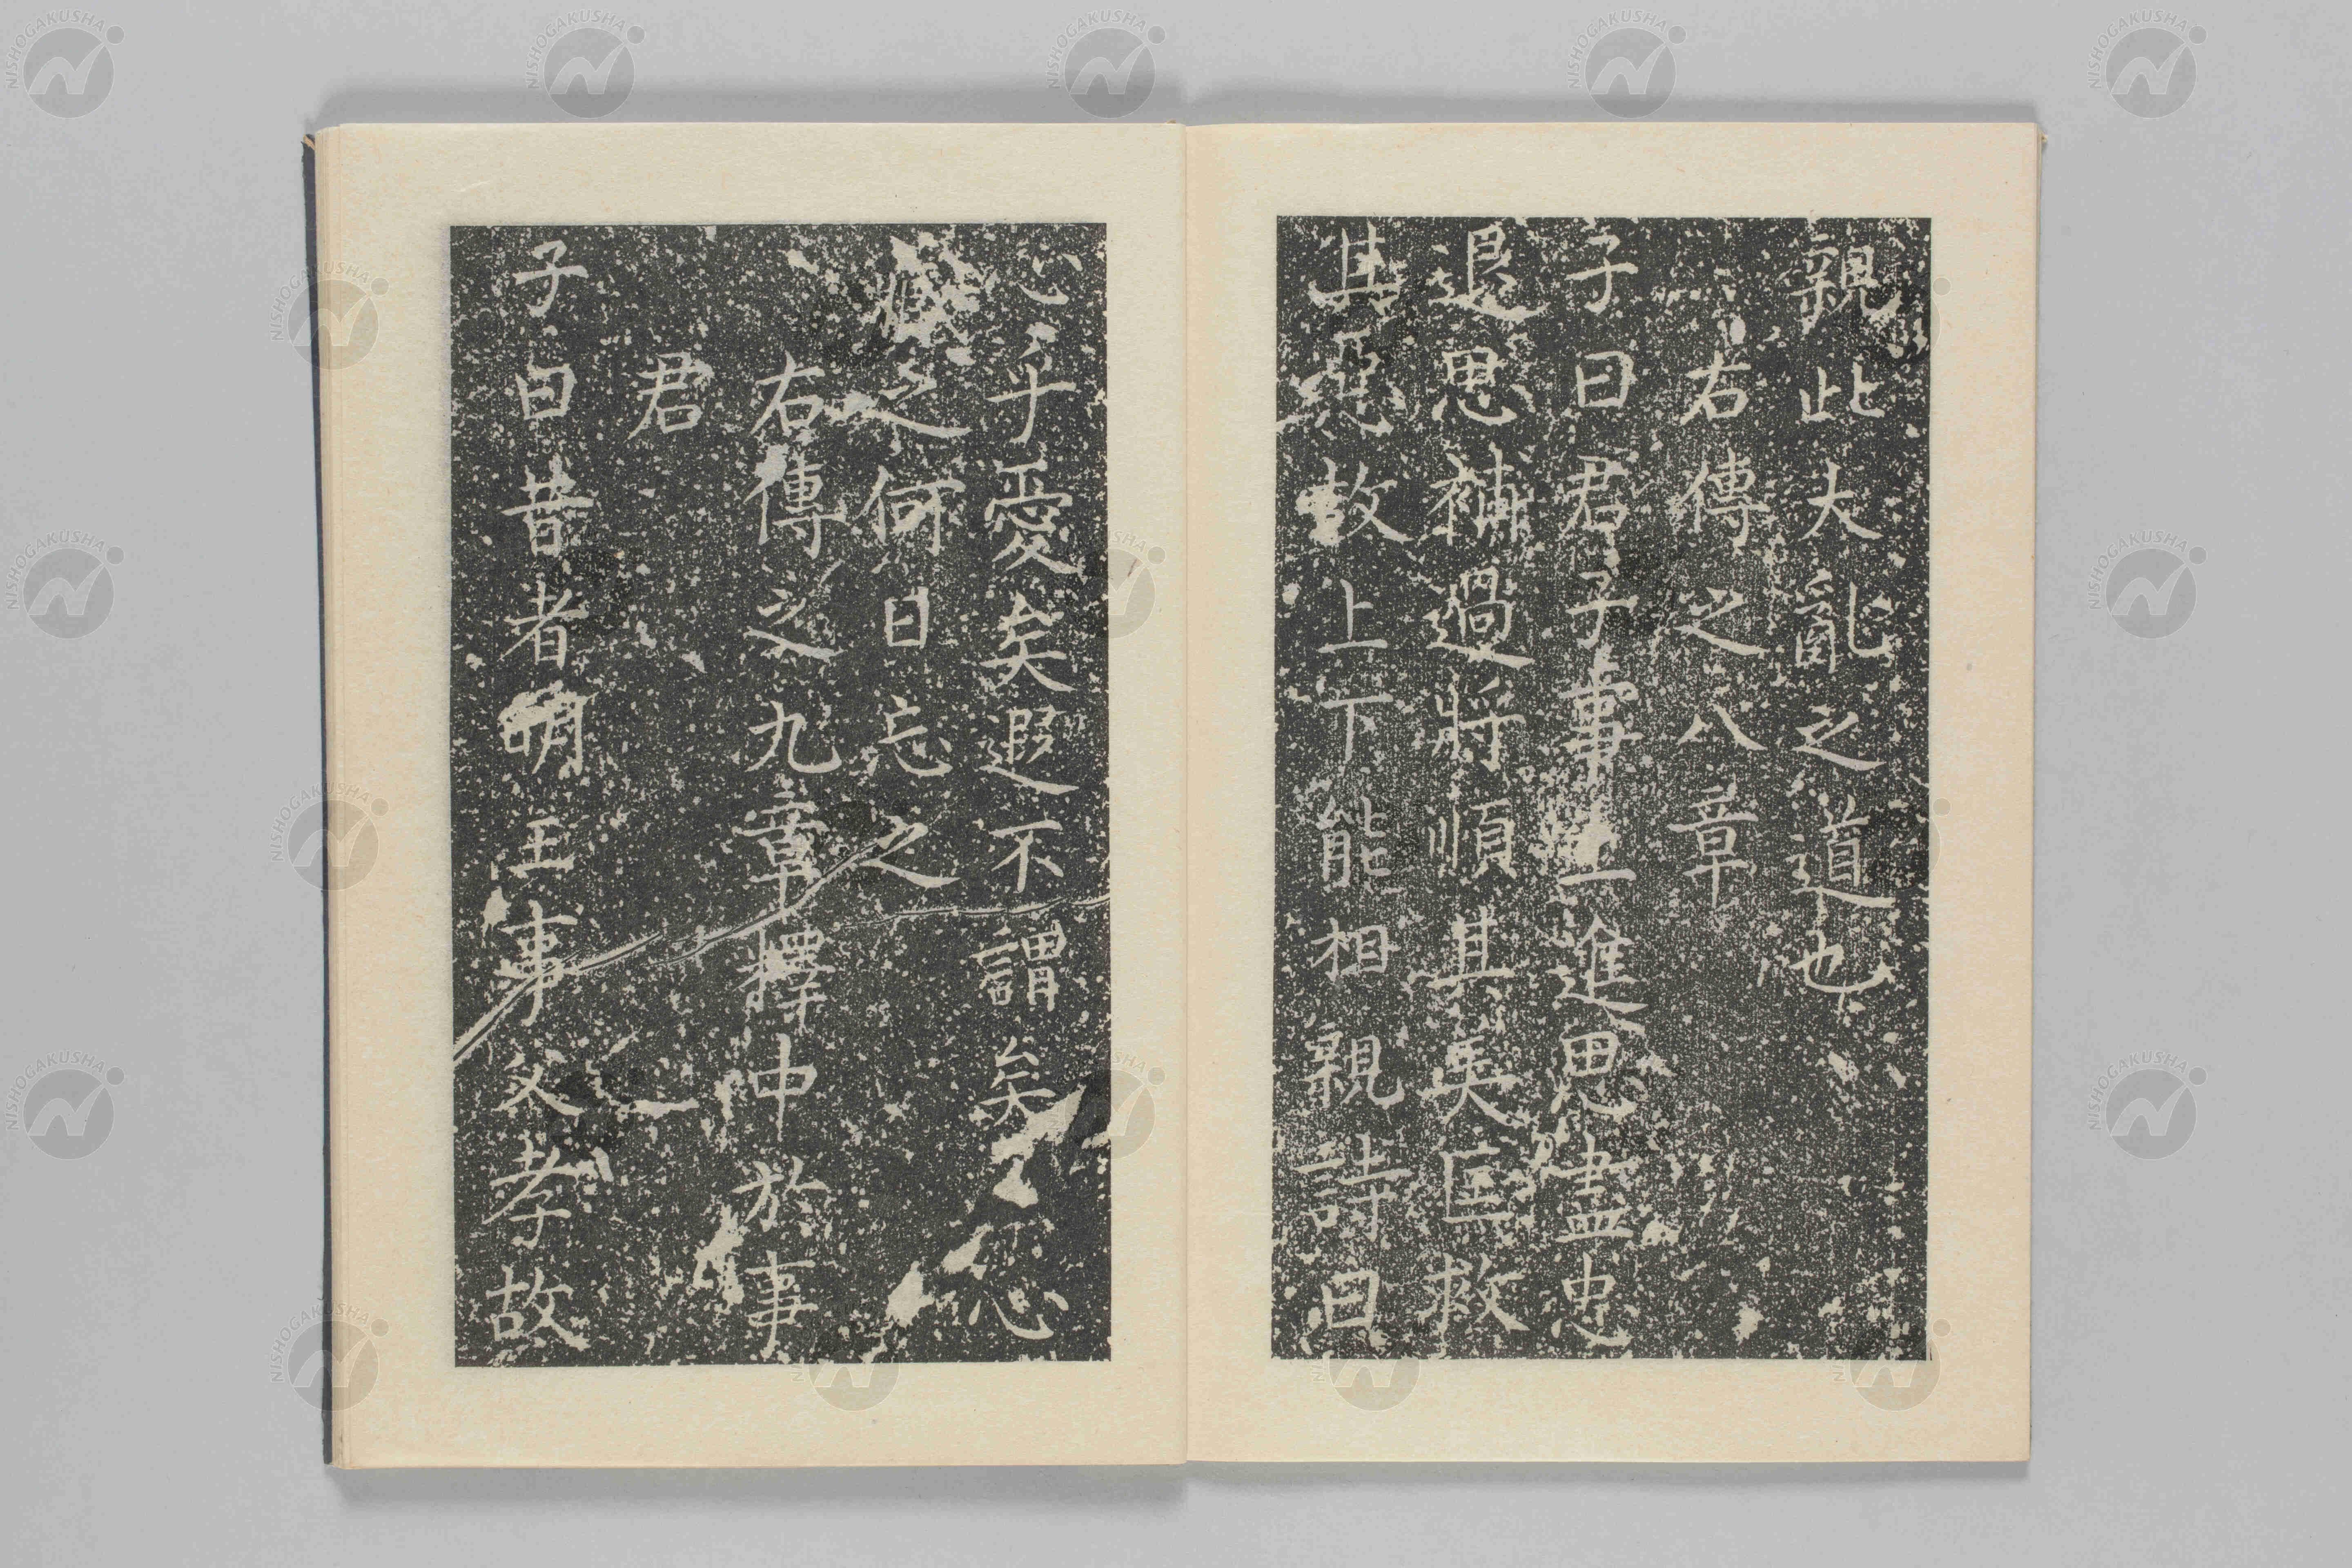 親此大亂之道也
右傳之八章
子曰君子事上進思盡忠
退思補過將順其美匡救
其惡故上下能相親詩曰
心乎愛矣遐不謂矣心
臧之何日忘之
右傳之九章釋中於事
君
子曰昔者明王事父孝故
NISHOGAKUSHA